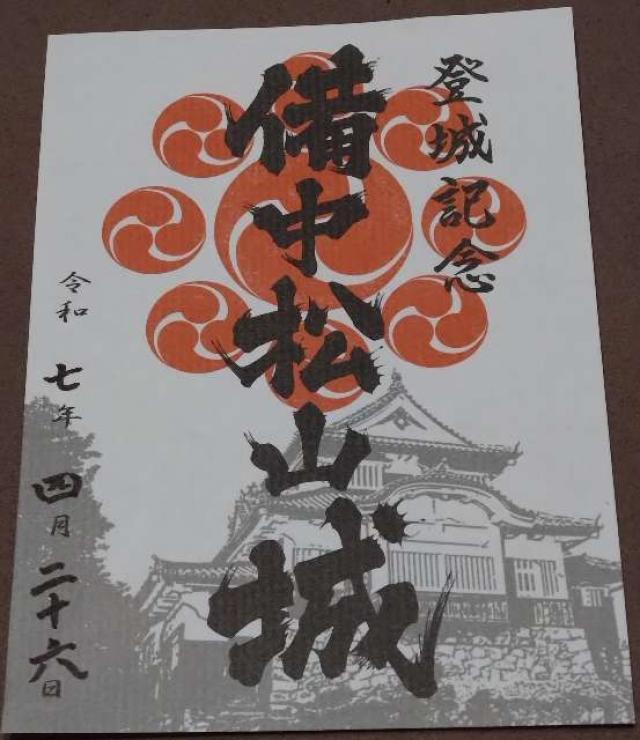 登城記念
備中松山城
令和七年四月二十六日